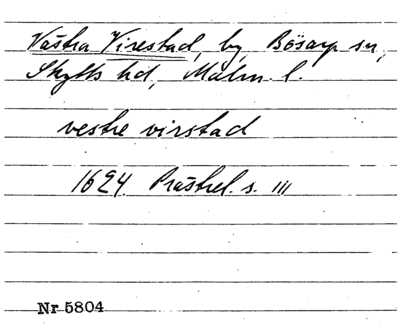 Västra Virestad, by, Bösarp sn,
Skytts hd, Malm. l.
vestre virstad
1624 Prästrel. s. 111
Nr 5804